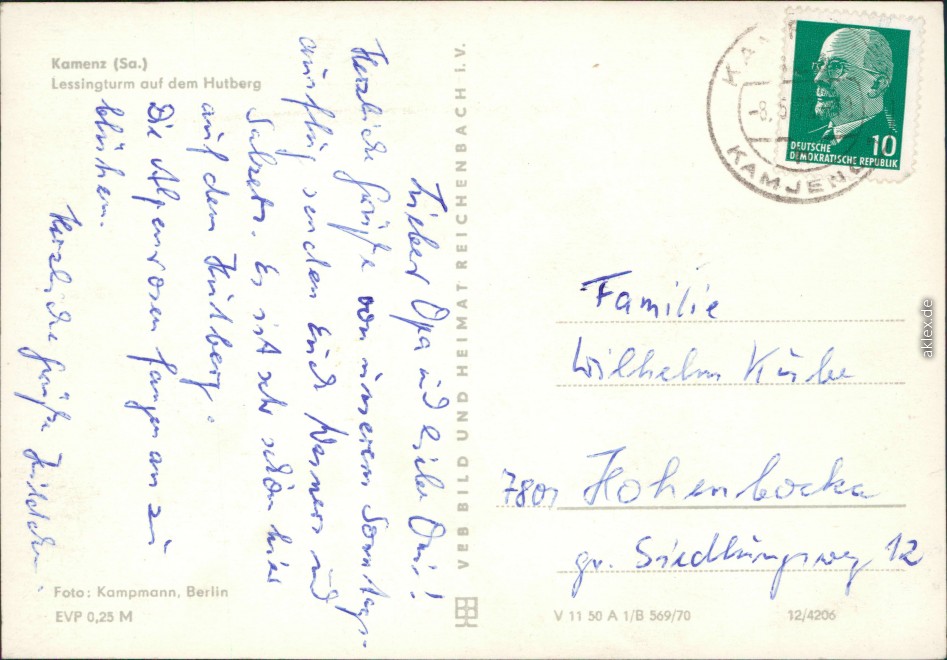 Kamenz (Sa.)
Lessingturm auf dem Hutberg
Lieber Opa und liebe Omi!
Herzliche Grüße von unserem Sonntags-
ausflug senden Euch Werners und
Salzers. Es ist sehr schön hier
auf dem Hutberg.
Die Alpenrosen fangen an zu
blühen.
Herzliche Grüße
Foto: Kampmann, Berlin
EVP 0,25 M
VEB BILD UND HEIMAT REICHENBACH I.V.
KAMJENC
-8.
10
DEUTSCHE
DEMOKRATISCHE REPUBLIK
Familie
Wilhelm Kube
7801 Hohenbocka
gr. Siedlungsweg 12
V 11 50 A 1/B 569/70
12/4206
aklex.de